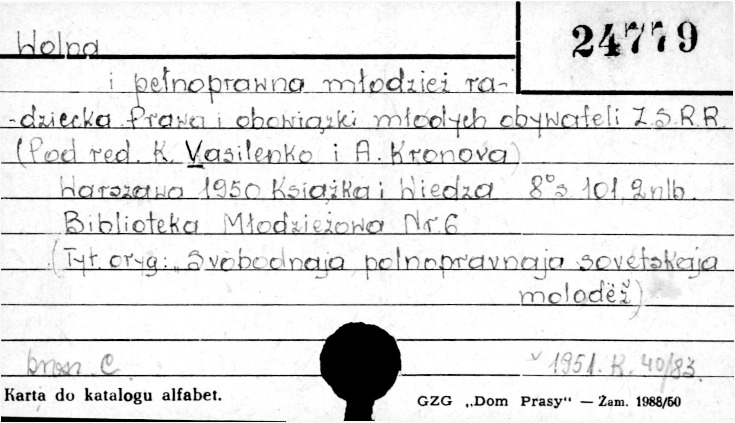 24779
Wolna
i pełnoprawna młodzież ra-
-dziecka. Prawa i obowiązki młodych obywateli Z.S.R.R.
(Pod red. K. Vasilenko i A. Kronova)
Warszawa 1950 Książka i Wiedza 8° s. 101, 2 nlb.
Biblioteka Młodzieżowa Nr. 6
(Tyt. oryg.: „Svobodnaja polnopravnaja sovetskaja
molodëž)
brosz. C. 1951. K. 40/83.
Karta do katalogu alfabet.
GZG „Dom Prasy" — Żam. 1988/50